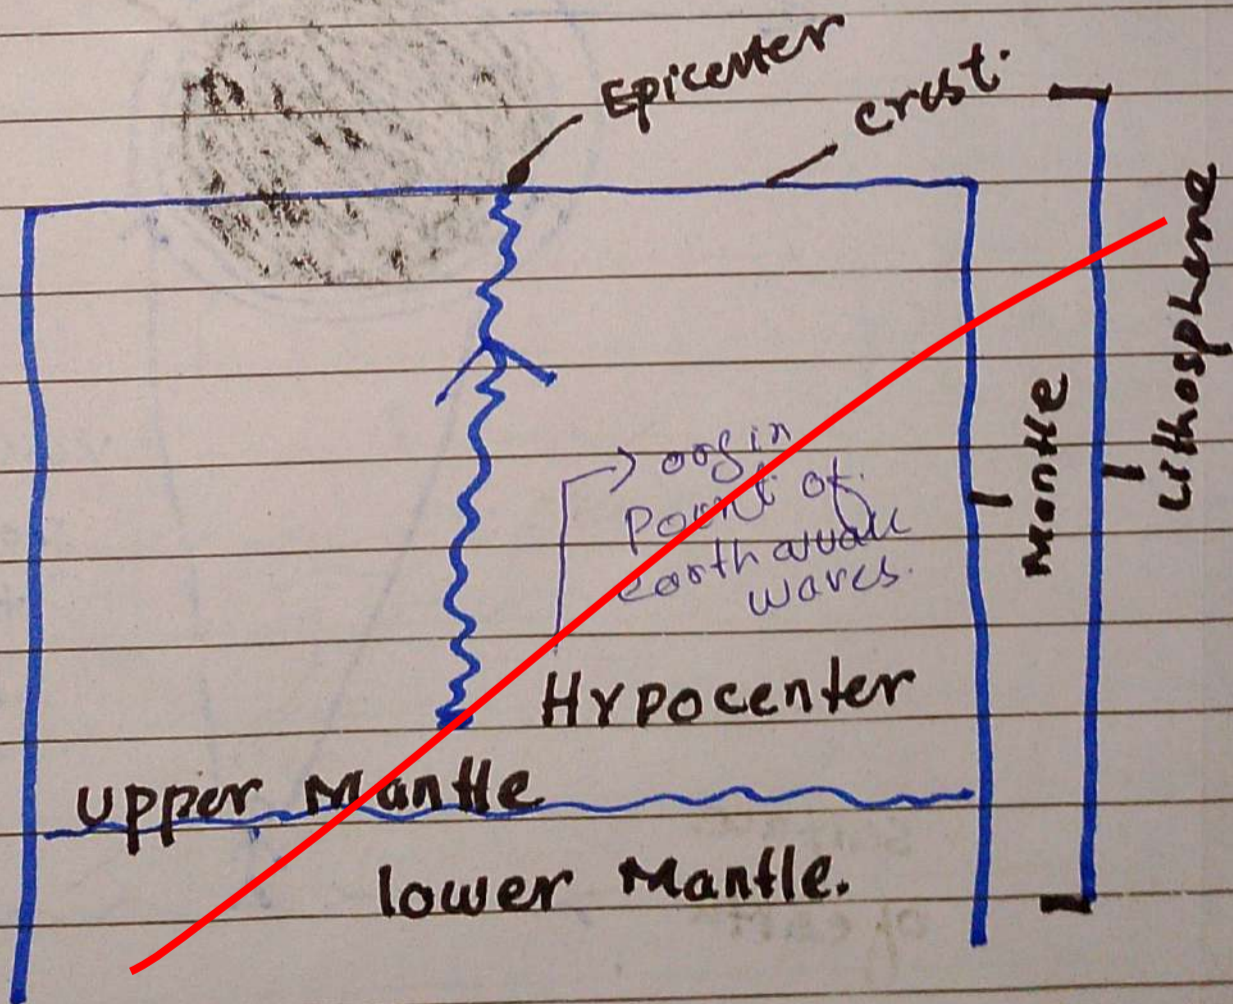 Epicenter
crust.
Lithosphere
Mantle
→ orgin
Point of
earthquake
waves.
Hypocenter
upper Mantle
lower Mantle.